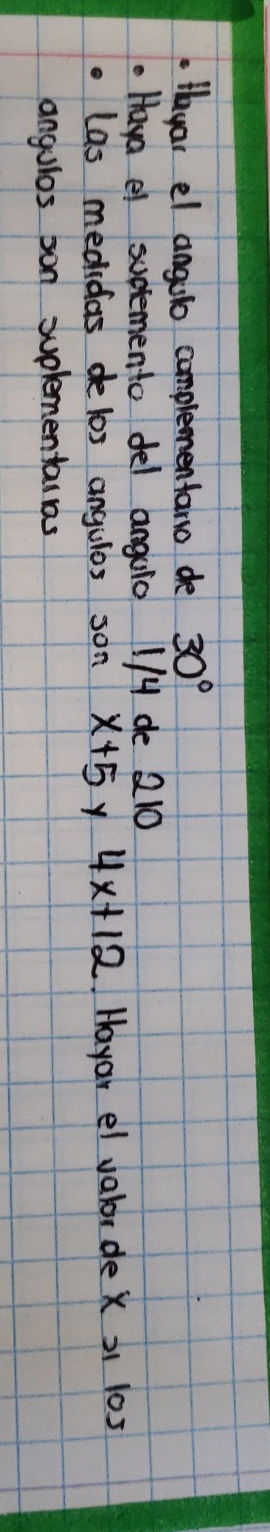 • Hayar el angulo complementario de 30°
• Haya el suplemento del angulo 1/4 de 210
• Las medidas de los angulos son x+5 y 4x+12. Hayar el valor de x si los
angulos son suplementarios